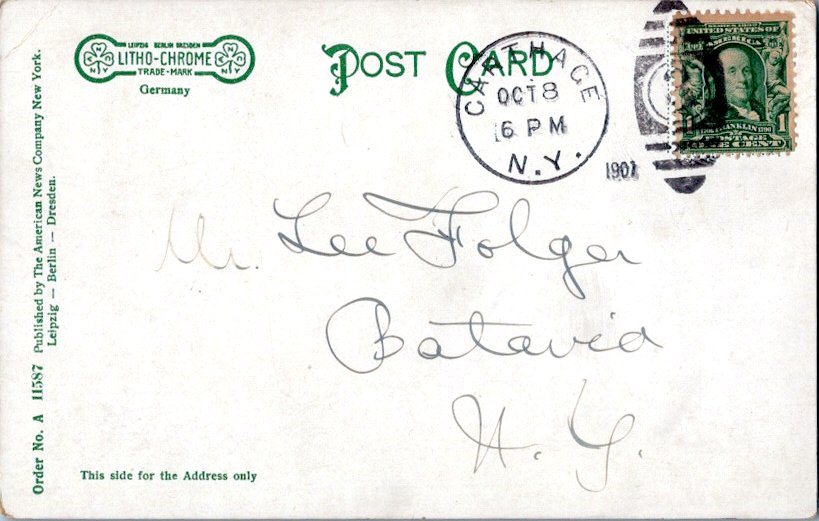 LEIPZIG BERLIN DRESDEN
LITHO-CHROME
TRADE-MARK
Germany
POST CARD
CARTHAGE
OCT 8
6 PM
N.Y.
1907
UNITED STATES OF
AMERICA
FRANKLIN
1
POSTAGE
ONE CENT
Mr. Lee Folger
Batavia
N. Y.
This side for the Address only
Order No. A 11587 Published by The American News Company New York.
Leipzig — Berlin — Dresden.